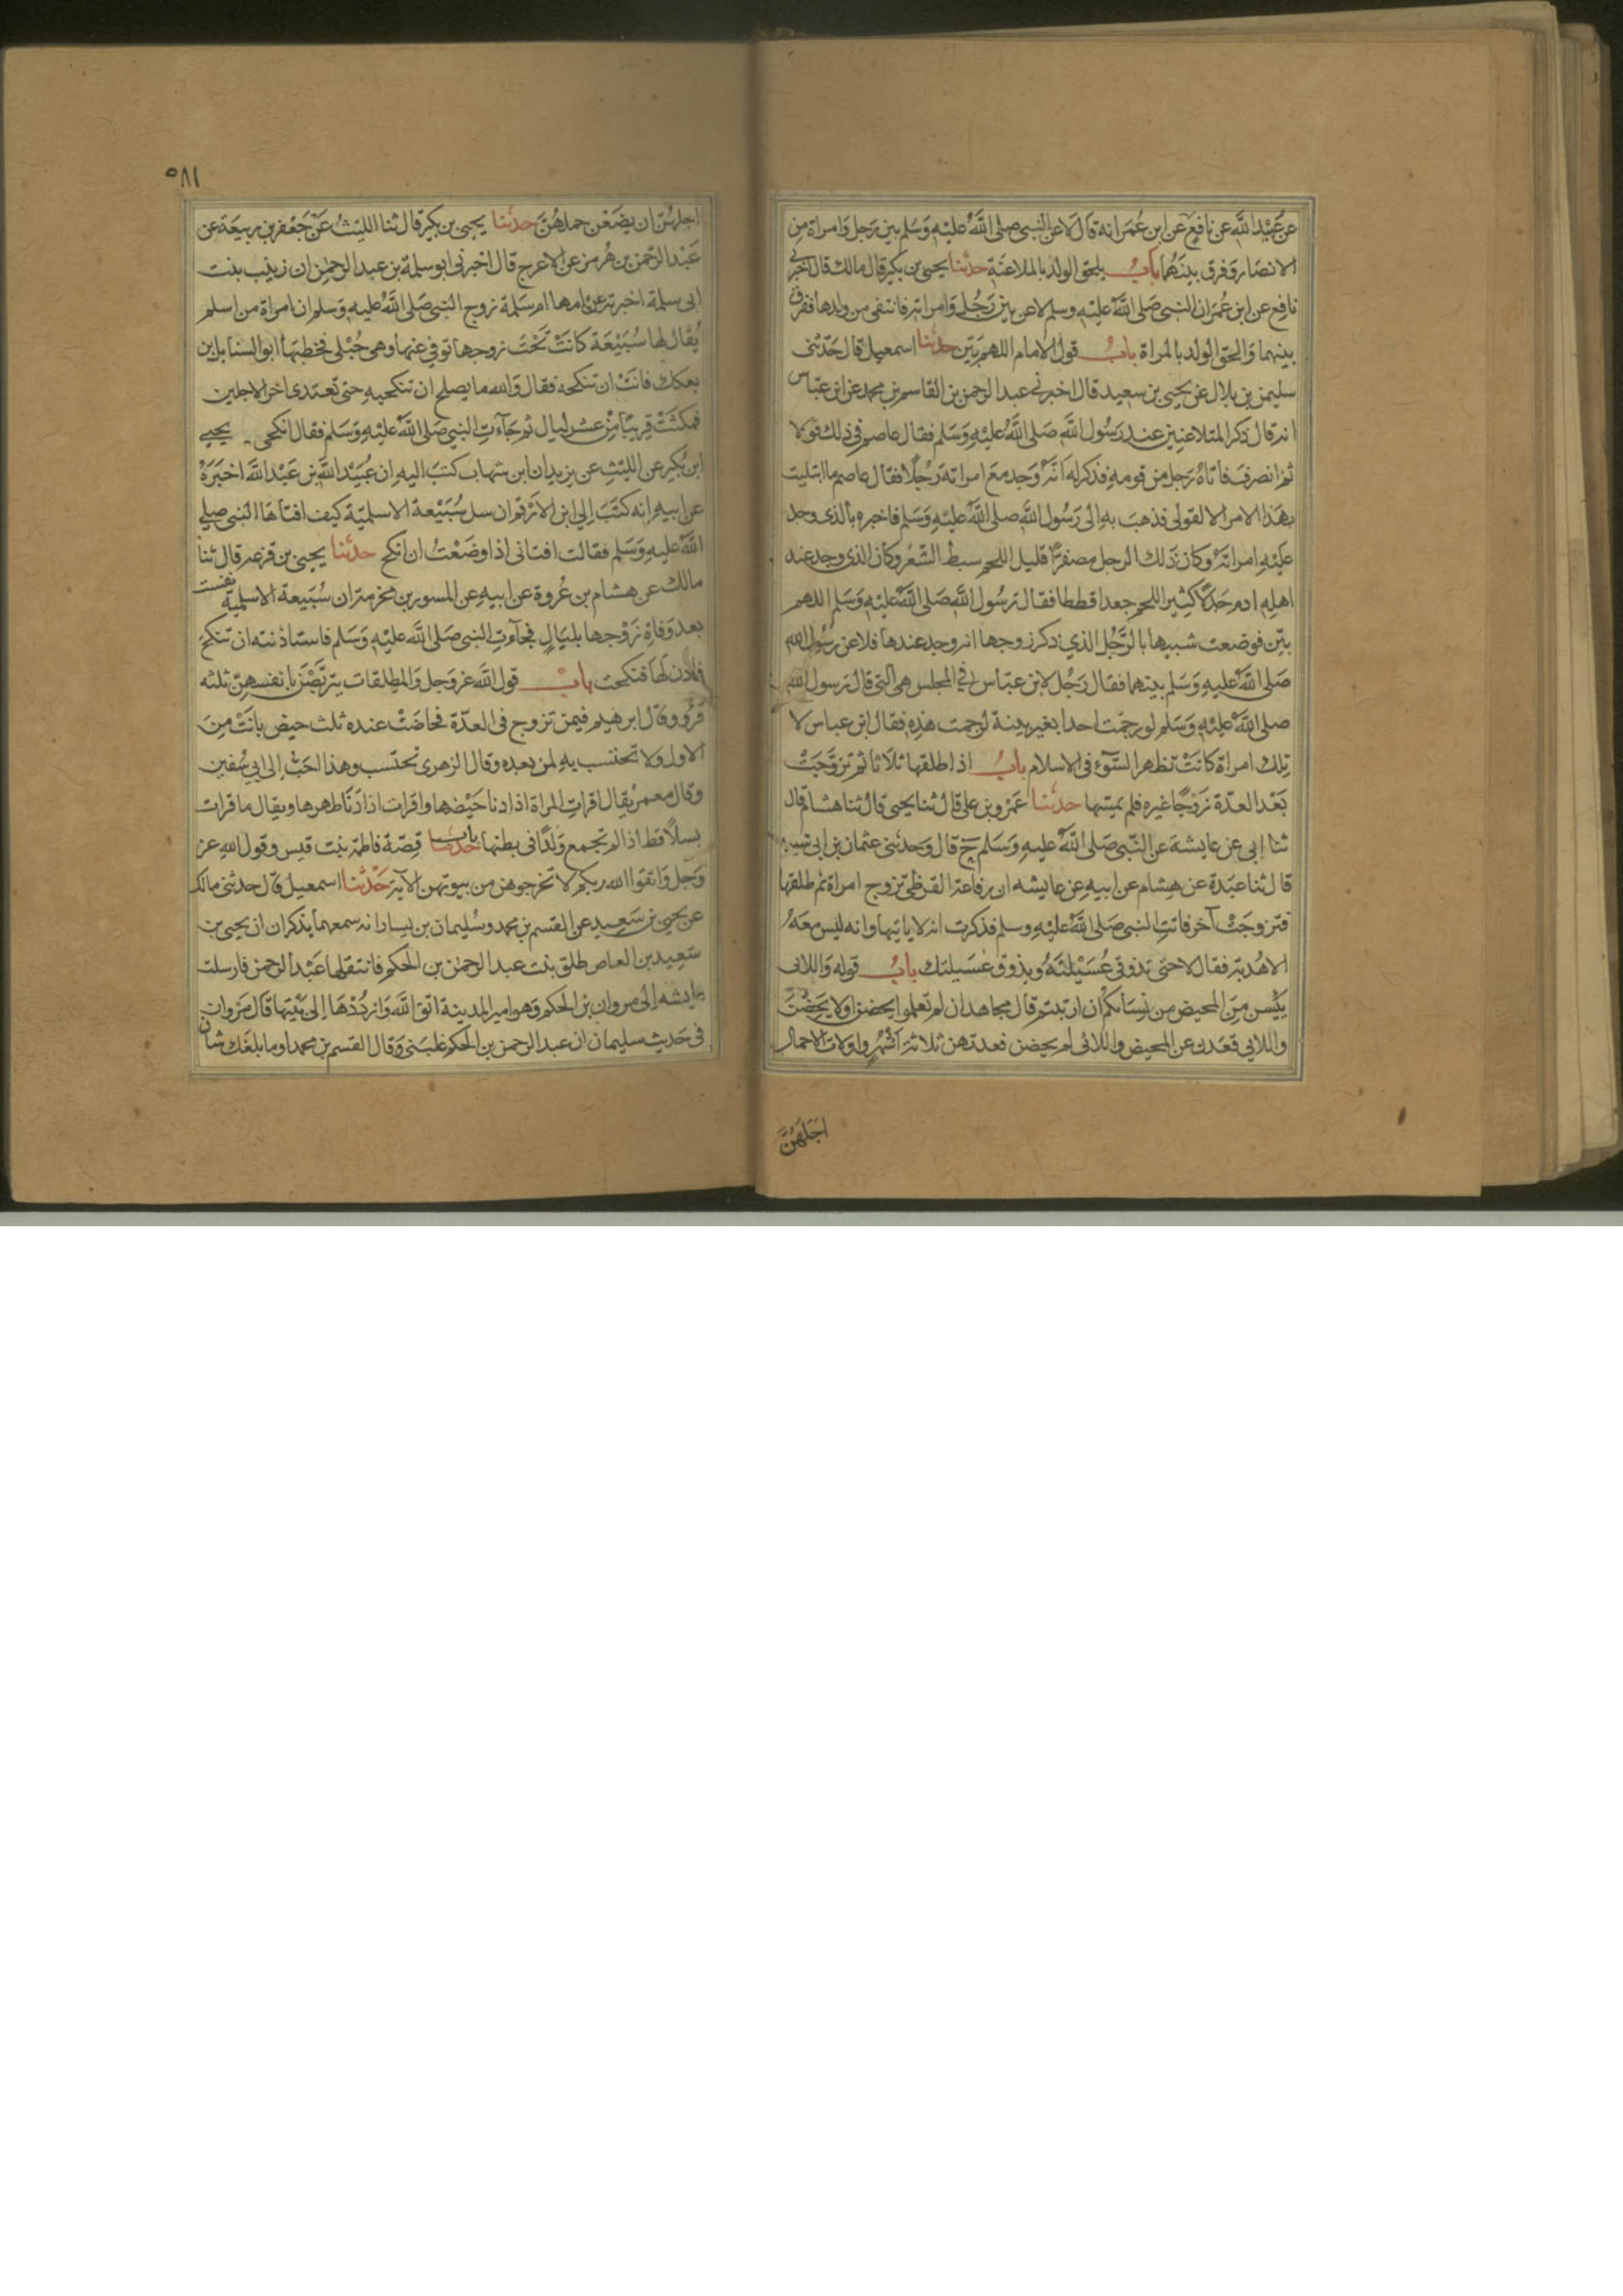 عن عبيد الله عن نافع عن ابن عمر انه قال لاعن النبي صلى الله عليه وسلم بين رجل وامراة من
الانصار وفرق بينهما باب يلحق الولد بالملاعنة حدثنا يحيى بن بكير قال مالك قال اخبرني
نافع عن ابن عمر ان النبي صلى الله عليه وسلم لاعن بين رجل وامراته فانتفى من ولدها ففرق
بينهما والحق الولد بالمراة باب قول الامام اللهم بين حدثنا اسمعيل قال حدثني
سليمن بن بلال عن يحيى بن سعيد قال اخبرني عبد الرحمن بن القاسم بن محمد عن ابن عباس
انه قال ذكر المتلاعنين عند رسول الله صلى الله عليه وسلم فقال عاصم في ذلك قولا
ثم انصرف فاتاه رجل من قومه فذكر له انه وجد مع امراته رجلا فقال عاصم ما ابتليت
بهذا الامر الا لقولى فذهب به الى رسول الله صلى الله عليه وسلم فاخبره بالذى وجد
عليه امراته وكان ذلك الرجل مصفرا قليل اللحم سبط الشعر وكان الذى وجد عند
اهله ادم خدلا كثير اللحم جعدا قططا فقال رسول الله صلى الله عليه وسلم اللهم
بين فوضعت شبيها بالرجل الذي ذكر زوجها انه وجد عندها فلاعن رسول الله
صلى الله عليه وسلم بينهما فقال رجل لابن عباس في المجلس هي التي قال رسول الله
صلى الله عليه وسلم لو رجمت احدا بغير بينة لرجمت هذه فقال ابن عباس لا
تلك امراة كانت تظهر السوء في الاسلام باب اذا طلقها ثلاثا ثم تزوجت
بعد العدة زوجا غيره فلم يمسها حدثنا عمرو بن علي قال ثنا يحيى قال ثنا هشام قال
ثنا ابي عن عايشة عن النبي صلى الله عليه وسلم ح قال وحدثني عثمان بن ابي شيبة
قال ثنا عبدة عن هشام عن ابيه عن عايشه ان رفاعة القرظي تزوج امراة ثم طلقها
فتزوجت آخر فاتت النبي صلى الله عليه وسلم فذكرت انه لا ياتيها وانه ليس معه
الا هدبة فقال لا حتى تذوقي عسيلته ويذوق عسيلتك باب قوله واللائي
يئسن من المحيض من نسائكم ان ارتبتم قال مجاهد ان لم تعلموا يحضن او لا يحضن
واللائي قعدن عن المحيض واللائى لم يحضن فعدتهن ثلاثة اشهر واولات الاحمال
اجلهن
٥٨١
اجلهن ان يضعن حملهن حدثنا يحيى بن بكير قال ثنا الليث عن جعفر بن ربيعة عن
عبد الرحمن بن هرمز عن الاعرج قال اخبرني ابو سلمة بن عبد الرحمن ان زينب بنت
ابى سلمة اخبرته عن امها ام سلمة زوج النبى صلى الله عليه وسلم ان امراة من اسلم
يقال لها سبيعة كانت تحت زوجها توفي عنها وهي حبلى فخطبها ابو السنابل بن
بعكك فابت ان تنكحه فقال والله ما يصلح ان تنكحيه حتى تعتدى اخر الاجلين
فمكثت قريبا من عشر ليال ثم جاءت النبي صلى الله عليه وسلم فقال انكحي يحيى
ابن بكير عن الليث عن يزيد ان ابن شهاب كتب اليه ان عبيد الله بن عبد الله اخبره
عن ابيه انه كتب الى ابن الارقم ان سل سبيعة الاسلمية كيف افتاها النبي صلى
الله عليه وسلم فقالت افتاني اذا وضعت ان انكح حدثنا يحيى بن قزعه قال ثنا
مالك عن هشام بن عروة عن ابيه عن المسور بن مخرمة ان سبيعة الاسلمية نفست
بعد وفاة زوجها بليال فجاءت النبي صلى الله عليه وسلم فاستاذنته ان تنكح
فاذن لها فنكحت باب قول الله عز وجل والمطلقات يتربصن بانفسهن ثلثه
قروء وقال ابرهيم فيمن تزوج في العدة فحاضت عنده ثلث حيض بانت من
الاول ولا تحتسب به لمن بعده وقال الزهرى تحتسب وهذا احب الى ابي سفين
وقال معمر يقال اقرات المراة اذا دنا حيضها واقرات اذا دنا طهرها ويقال ما قرات
بسلا قط اذا لم تجمع ولدا في بطنها باب قصة فاطمة بنت قيس وقول الله عز
وجل واتقوا الله ربكم لا تخرجوهن من بيوتهن الآية حدثنا اسمعيل قال حدثني مالك
عن يحيى بن سعيد عن القسم بن محمد وسليمان بن يسار انه سمعهما يذكران ان يحيى بن
سعيد بن العاص طلق بنت عبد الرحمن بن الحكم فانتقلها عبد الرحمن فارسلت
عايشه الى مروان بن الحكم وهو امير المدينة اتق الله وارددها الى بيتها قال مروان
في حديث سليمان ان عبد الرحمن بن الحكم غلبني وقال القسم بن محمد اوما بلغك شان